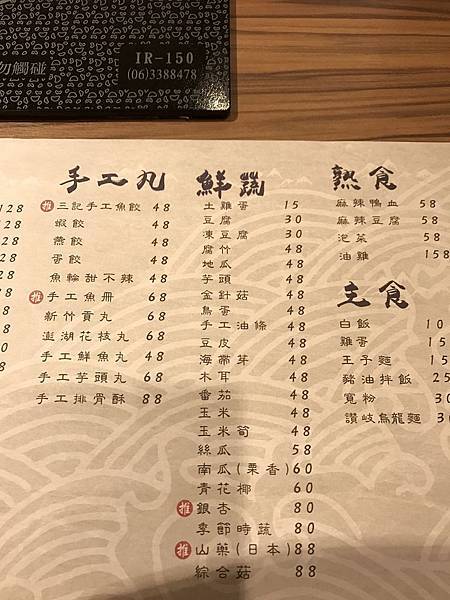 勿觸碰
IR-150
(06)3388478
128
手工丸
推 三記手工魚餃 48
蝦餃 48
燕餃 48
蛋餃 48
魚輪甜不辣 48
推 手工魚冊 68
新竹貢丸 68
澎湖花枝丸 68
手工鮮魚丸 48
手工芋頭丸 68
手工排骨酥 88
鮮蔬
土雞蛋 15
豆腐 30
凍豆腐 30
腐竹 48
地瓜 48
芋頭 48
金針菇 48
鳥蛋 48
手工油條 48
豆皮 48
海帶芽 48
木耳 48
番茄 48
玉米 48
玉米筍 48
絲瓜 58
南瓜(栗香)60
青花椰 60
推 銀杏 80
季節時蔬 80
推 山藥(日本)88
綜合菇 88
熟食
麻辣鴨血 58
麻辣豆腐 58
泡菜 58
油雞 158
主食
白飯 10
雞蛋 15
王子麵 15
豬油拌飯 25
寬粉 30
讚岐烏龍麵 30